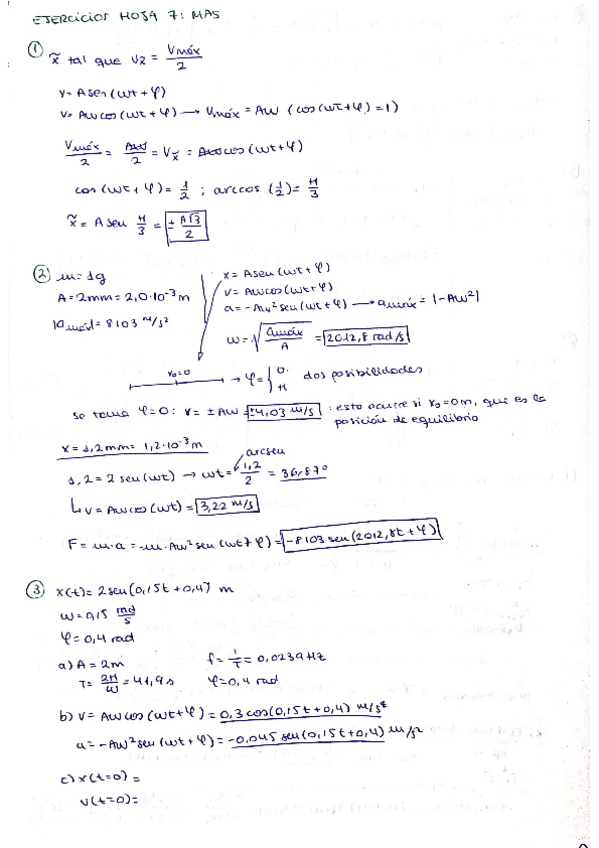 EJERCICIOS HOJA 7: MAS
① x̃ tal que v_x̃ = Vmáx/2
x = A sen(wt + φ)
v = Aw cos(wt + φ) → Vmáx = Aw (cos(wt + φ) = 1)
Vmáx/2 = Aw/2 = V_x̃ = Aw cos(wt + φ)
cos(wt + φ) = 1/2 ; arccos(1/2) = π/3
x̃ = A sen π/3 = ± A√3/2
② m = 1g
A = 2mm = 2,0·10⁻³ m
|amáx| = 8103 m/s²
x = A sen(wt + φ)
v = Aw cos(wt + φ)
a = -Aw² sen(wt + φ) → amáx = |-Aw²|
w = √(amáx/A) = 2012,8 rad/s
x₀=0 → φ = { 0. π dos posibilidades
se toma φ=0: v = ± Aw = ±4,03 m/s : esto ocurre si x₀ = 0m, que es la
posición de equilibrio
x = 1,2mm = 1,2·10⁻³ m
arcsen
1,2 = 2 sen(wt) → wt = 1,2/2 = 36,87°
↳ v = Aw cos(wt) = 3,22 m/s
F = m·a = -m·Aw² sen(wt + φ) = -8103 sen(2012,8t + φ)
③ x(t) = 2 sen(0,15t + 0,4) m
w = 0,15 rad/s
φ = 0,4 rad
a) A = 2m f = 1/T = 0,0239 Hz
T = 2π/w = 41,9 s φ = 0,4 rad
b) v = Aw cos(wt + φ) = 0,3 cos(0,15t + 0,4) m/s
a = -Aw² sen(wt + φ) = -0,045 sen(0,15t + 0,4) m/s²
c) x(t=0) =
v(t=0) =